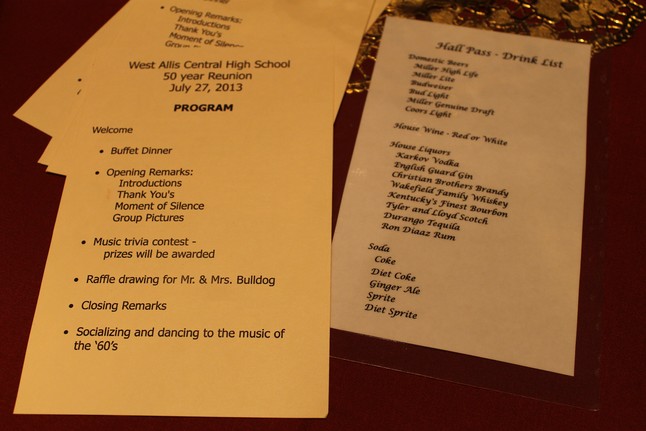 Opening Remarks:
Introductions
Thank You's
Moment of Silence
West Allis Central High School
50 year Reunion
July 27, 2013
PROGRAM
Welcome
• Buffet Dinner
• Opening Remarks:
Introductions
Thank You's
Moment of Silence
Group Pictures
• Music trivia contest -
prizes will be awarded
• Raffle drawing for Mr. & Mrs. Bulldog
• Closing Remarks
• Socializing and dancing to the music of
the '60's
Hall Pass - Drink List
Domestic Beers
Miller High Life
Miller Lite
Budweiser
Bud Light
Miller Genuine Draft
Coors Light
House Wine - Red or White
House Liquors
Karkov Vodka
English Guard Gin
Christian Brothers Brandy
Wakefield Family Whiskey
Kentucky's Finest Bourbon
Tyler and Lloyd Scotch
Durango Tequila
Ron Diaaz Rum
Soda
Coke
Diet Coke
Ginger Ale
Sprite
Diet Sprite